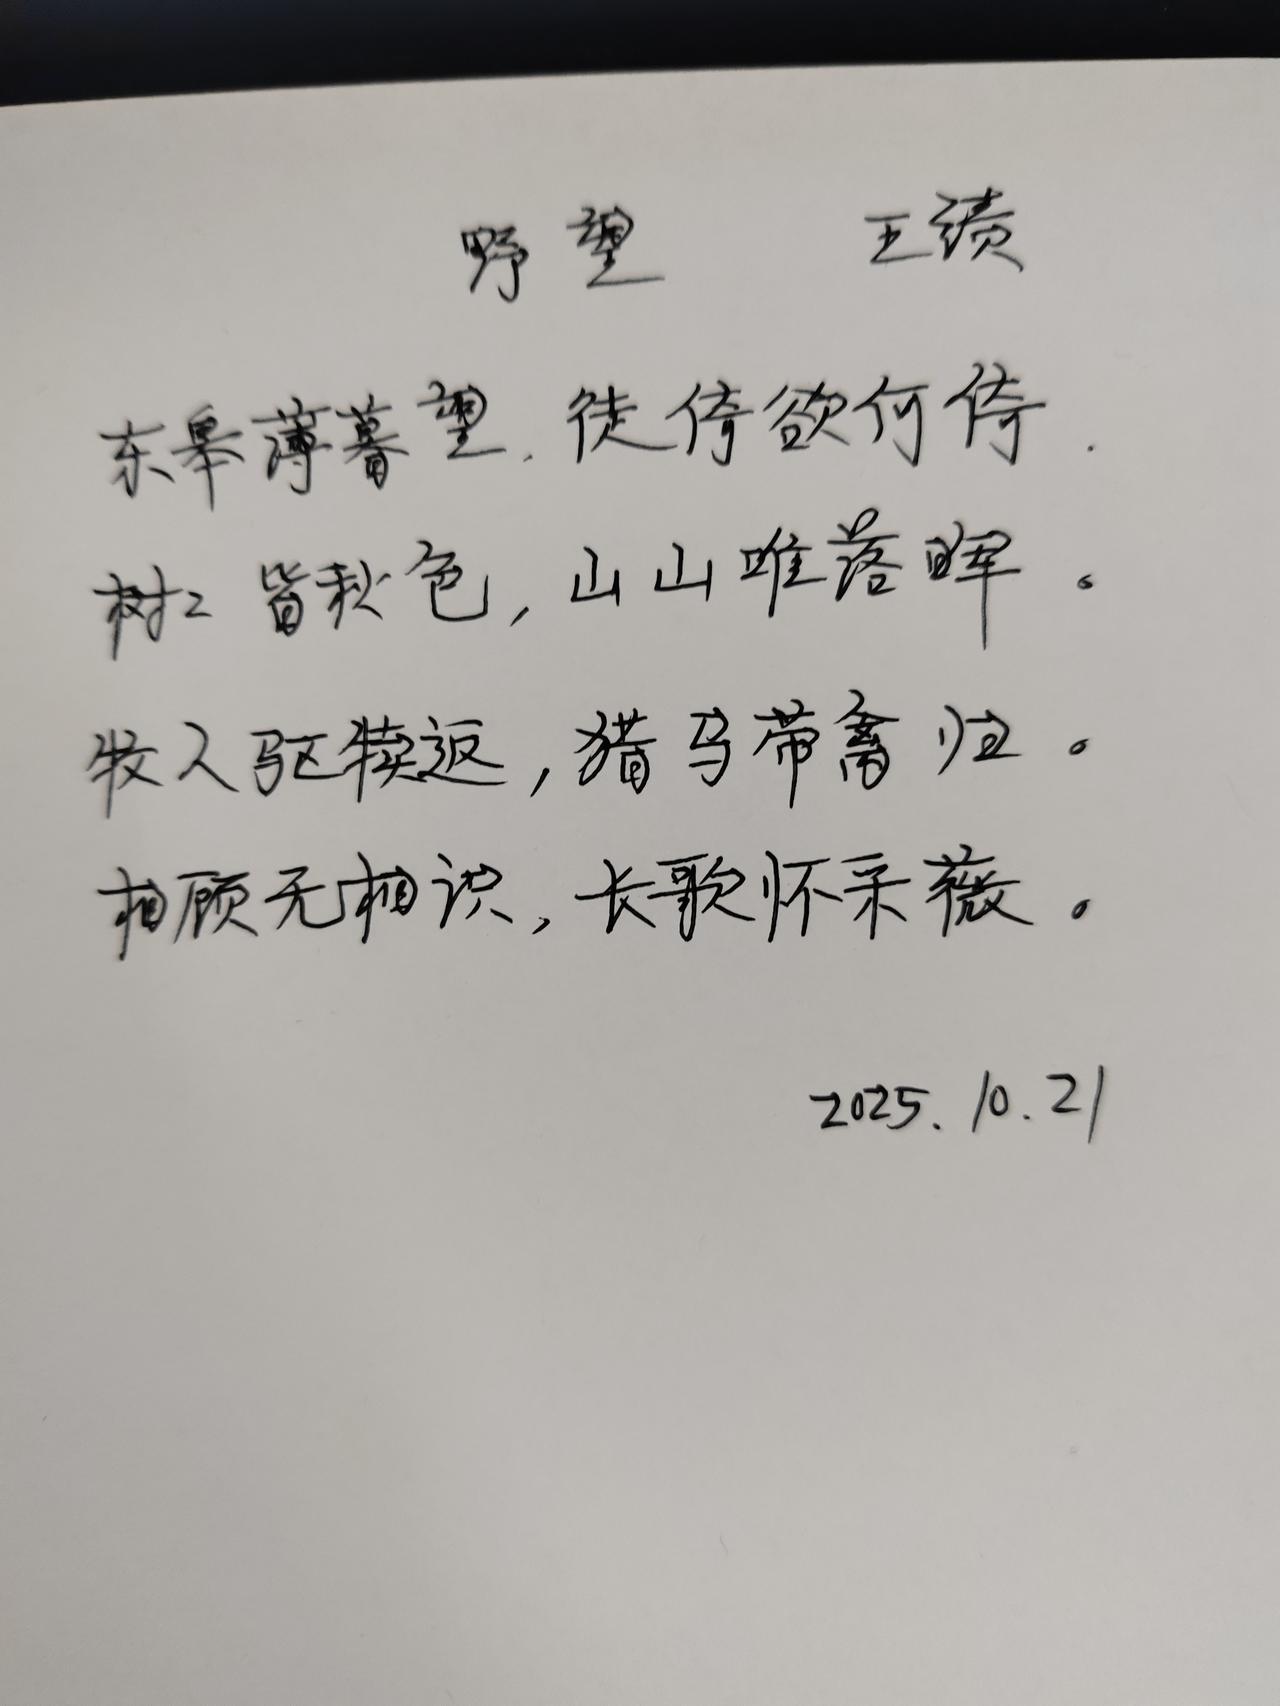 野望 王绩
东皋薄暮望.徒倚欲何倚.
树々皆秋色,山山唯落晖。
牧人驱犊返,猎马带禽归。
相顾无相识,长歌怀采薇。
2025.10.21